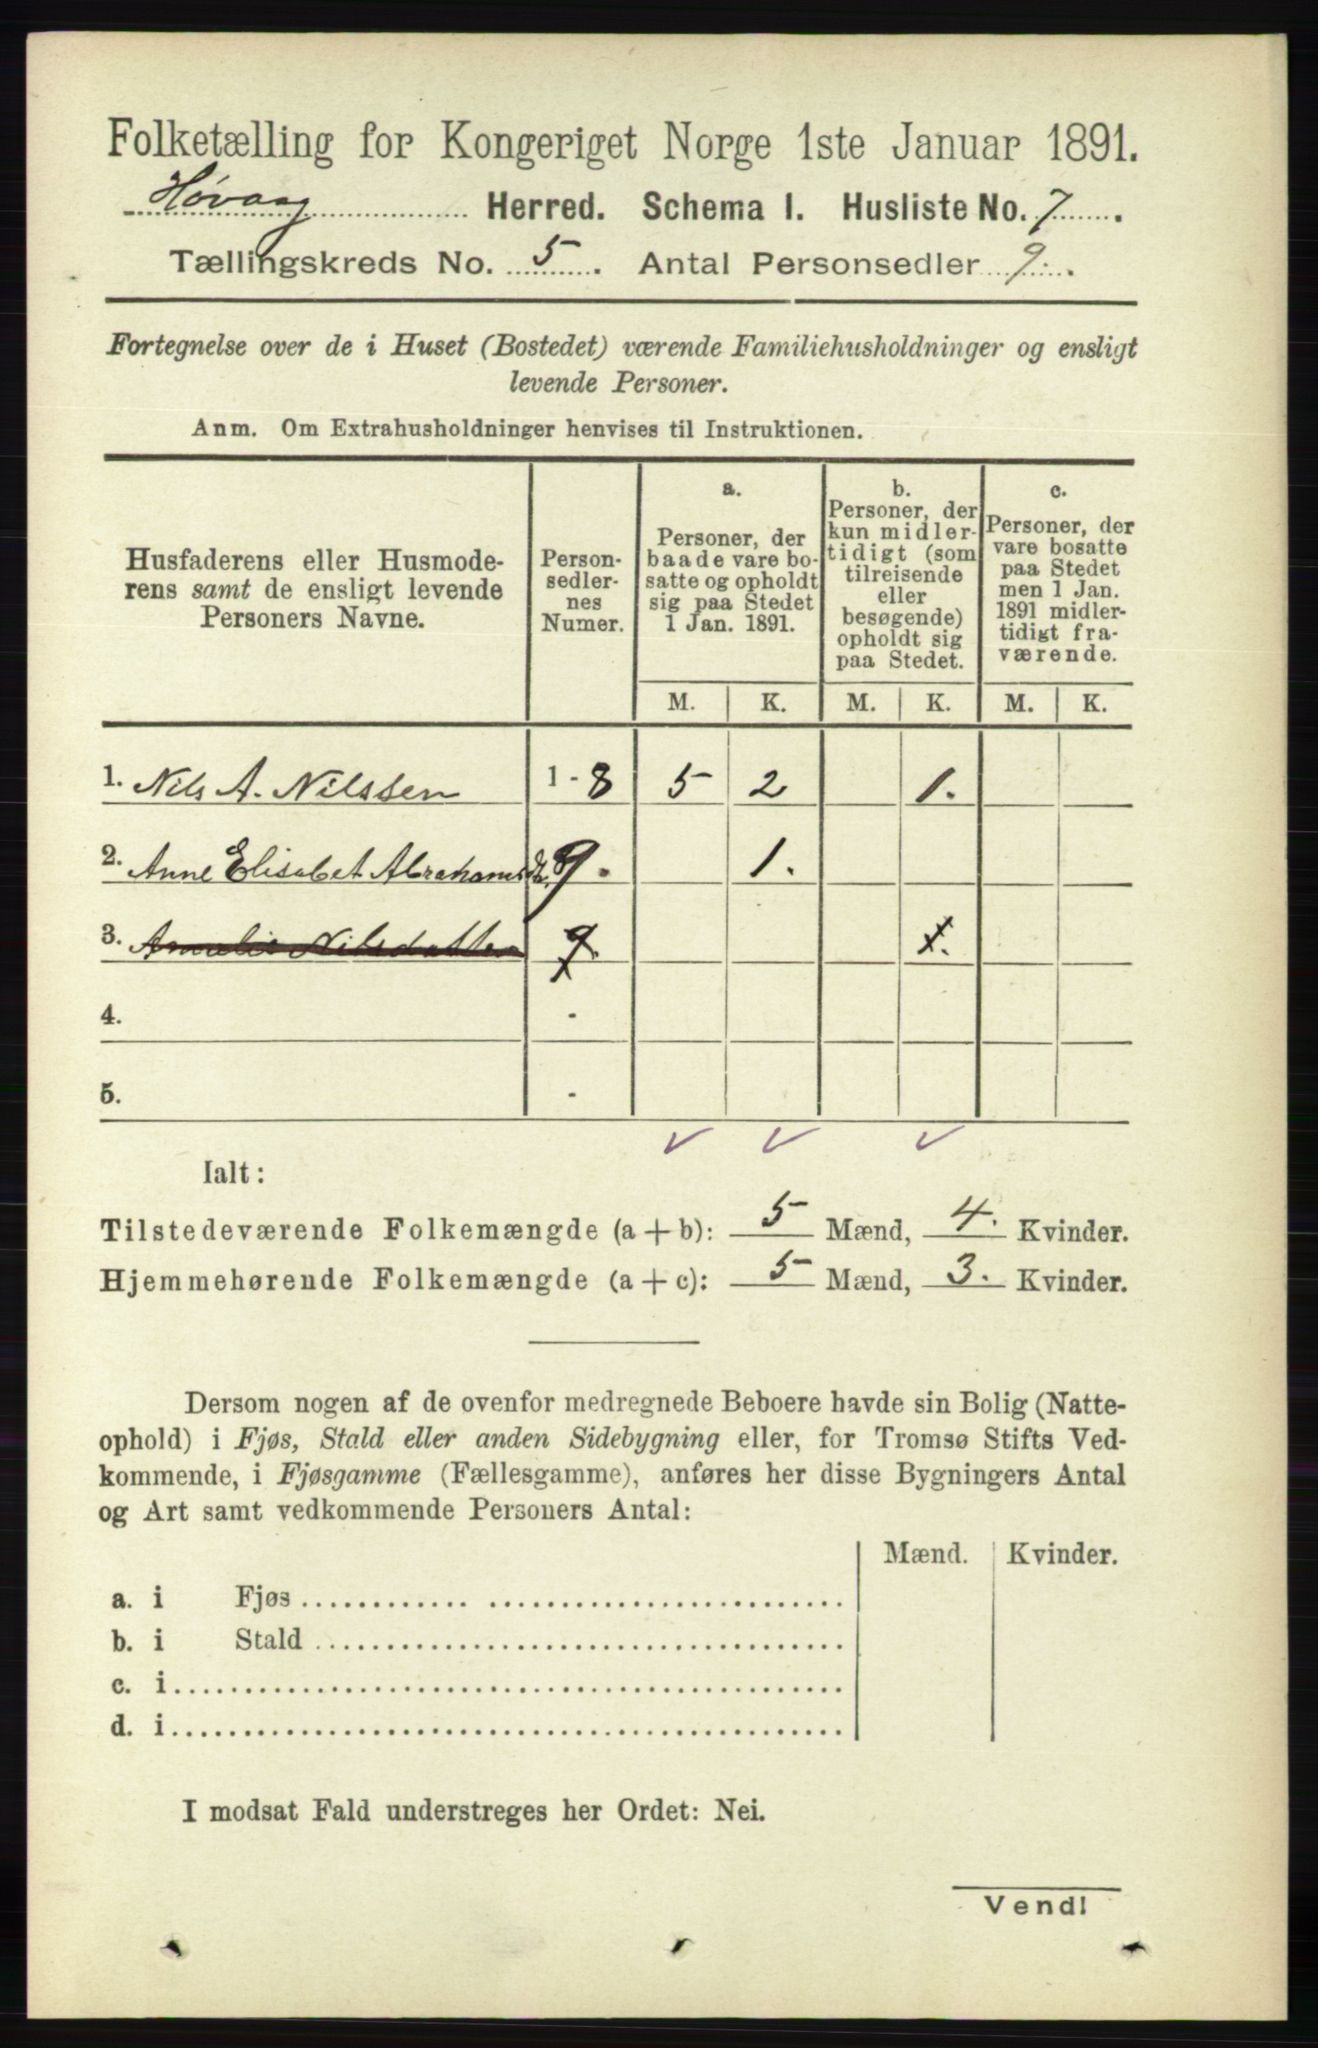 Folketælling for Kongeriget Norge 1ste Januar 1891.
Høvaag Herred. Schema I. Husliste No. 7.
Tællingskreds No. 5. Antal Personsedler 9.
Fortegnelse over de i Huset (Bostedet) værende Familiehusholdninger og ensligt
levende Personer.
Anm. Om Extrahusholdninger henvises til Instruktionen.
Husfaderens eller Husmode-
rens samt de ensligt levende
Personers Navne.
Person-
sedler-
nes
Numer.
a.
Personer, der
baade vare bo-
satte og opholdt
sig paa Stedet
1 Jan. 1891.
b.
Personer, der
kun midler-
tidigt (som
tilreisende
eller
besøgende)
opholdt sig
paa Stedet.
c.
Personer, der
vare bosatte
paa Stedet
men 1 Jan.
1891 midler-
tidigt fra-
værende.
M. K. M. K. M. K.
1. Nils A. Nilssen 1 - 8 5 2 1.
2. Anne Elisabet Abrahamsdt. 9. 1.
3. Amalie Nilsdatter 9. 1.
4. -
5. -
Ialt:
Tilstedeværende Folkemængde (a + b): 5 Mænd, 4. Kvinder.
Hjemmehørende Folkemængde (a + c): 5 Mænd, 3. Kvinder.
Dersom nogen af de ovenfor medregnede Beboere havde sin Bolig (Natte-
ophold) i Fjøs, Stald eller anden Sidebygning eller, for Tromsø Stifts Ved-
kommende, i Fjøsgamme (Fællesgamme), anføres her disse Bygningers Antal
og Art samt vedkommende Personers Antal:
Mænd. Kvinder.
a. i Fjøs
b. i Stald
c. i
d. i
I modsat Fald understreges her Ordet: Nei.
Vend!